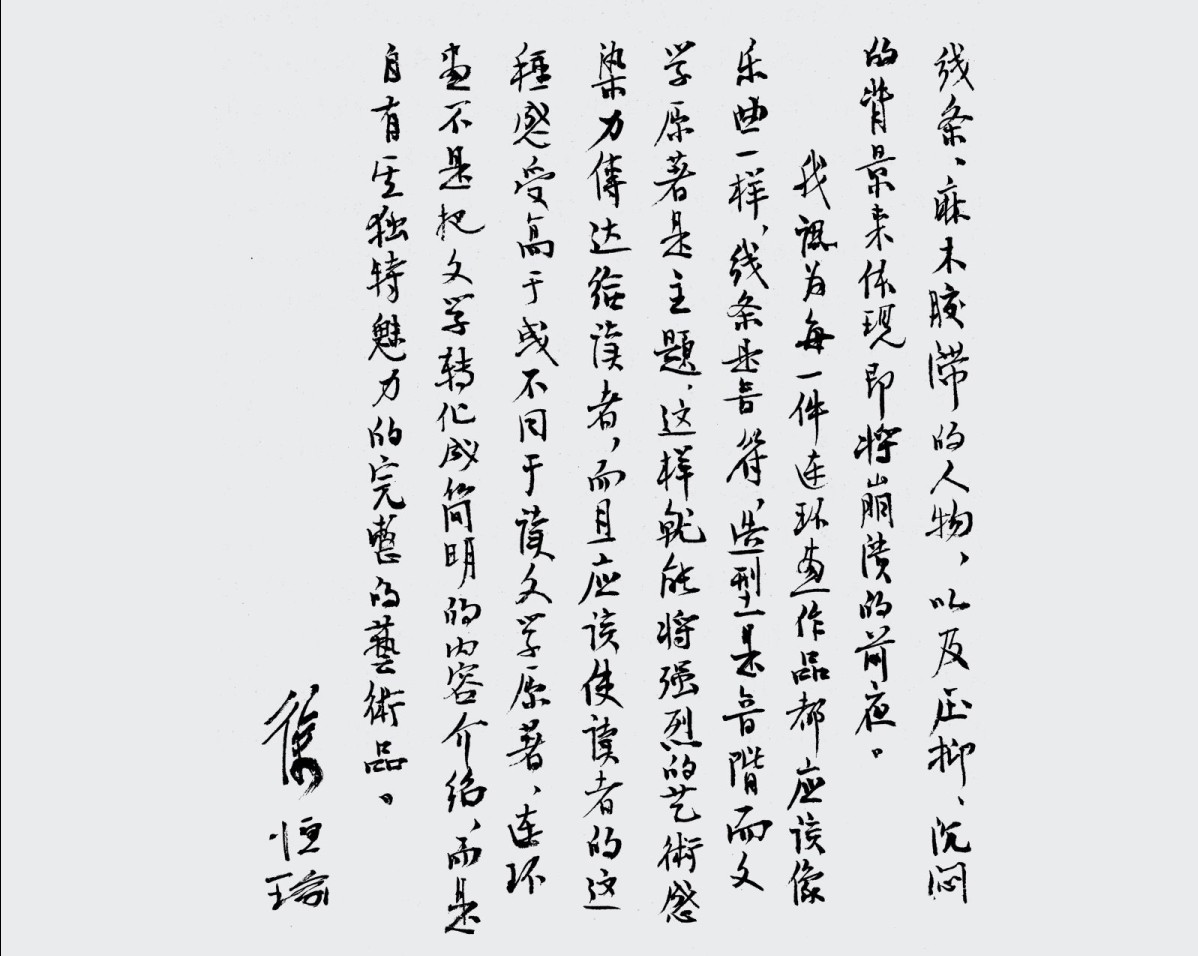 线条、麻木胶滞的人物，以及压抑、沉闷
的背景来体现即将崩溃的前夜。
我认为每一件连环画作品都应该像
乐曲一样，线条是音符，造型是音阶而文
学原著是主题，这样就能将强烈的艺術感
染力傳达给读者，而且应该使读者的这
種感受高于或不同于读文学原著，连环
画不是把文学转化成简明的内容介绍，而是
自有其独特魅力的完整的藝術品。
徐恒瑜